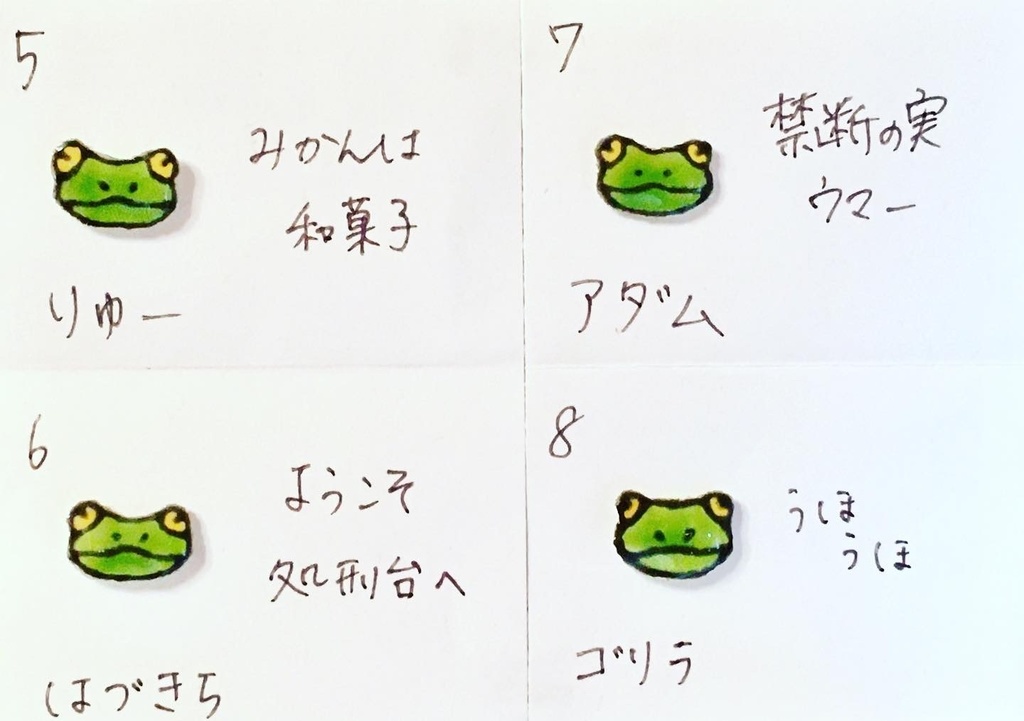 5
みかんは
和菓子
りゅー
6
ようこそ
処刑台へ
はづきち
7
禁断の実
ウマー
アダム
8
うほ
うほ
ゴリラ